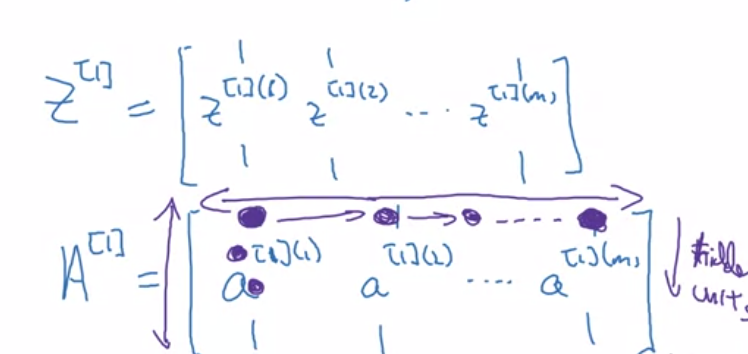 Z^[1] = [ z^[1](1) z^[1](2) ... z^[1](m) ]
A^[1] = [ a^[1](1) a^[1](2) .... a^[1](m) ]
units